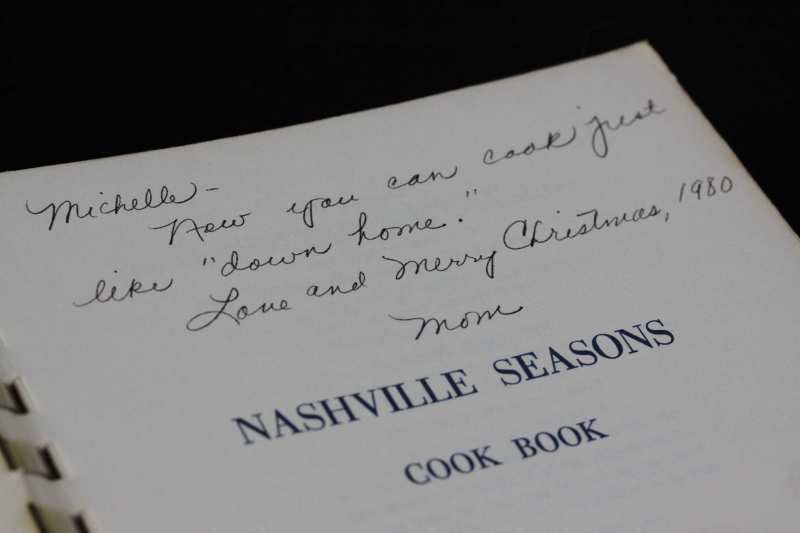 Michelle -
Now you can cook just
like "down home."
Love and Merry Christmas, 1980
Mom
NASHVILLE SEASONS
COOK BOOK